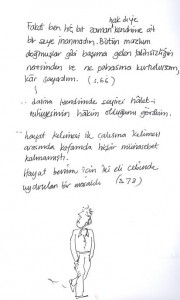 hak diye
Fakat ben hiç bir zaman kendime ait
bir şeye inanmadım. Bütün mazlum
doğmuşlar gibi başıma gelen talihsizliğin
neresinden ve ne pahasına kurtulursam,
kâr sayardım. (s.66)
.. daima kendimde seyirci hâlet-i
ruhiyesinin hâkim olduğunu gördüm.
.. hayat kelimesi ile çalışma kelimesi
arasında kafamda hiçbir münasebet
kalmamıştı.
Hayat benim için iki eli cebinde
uydurulan bir masaldı (s.78)